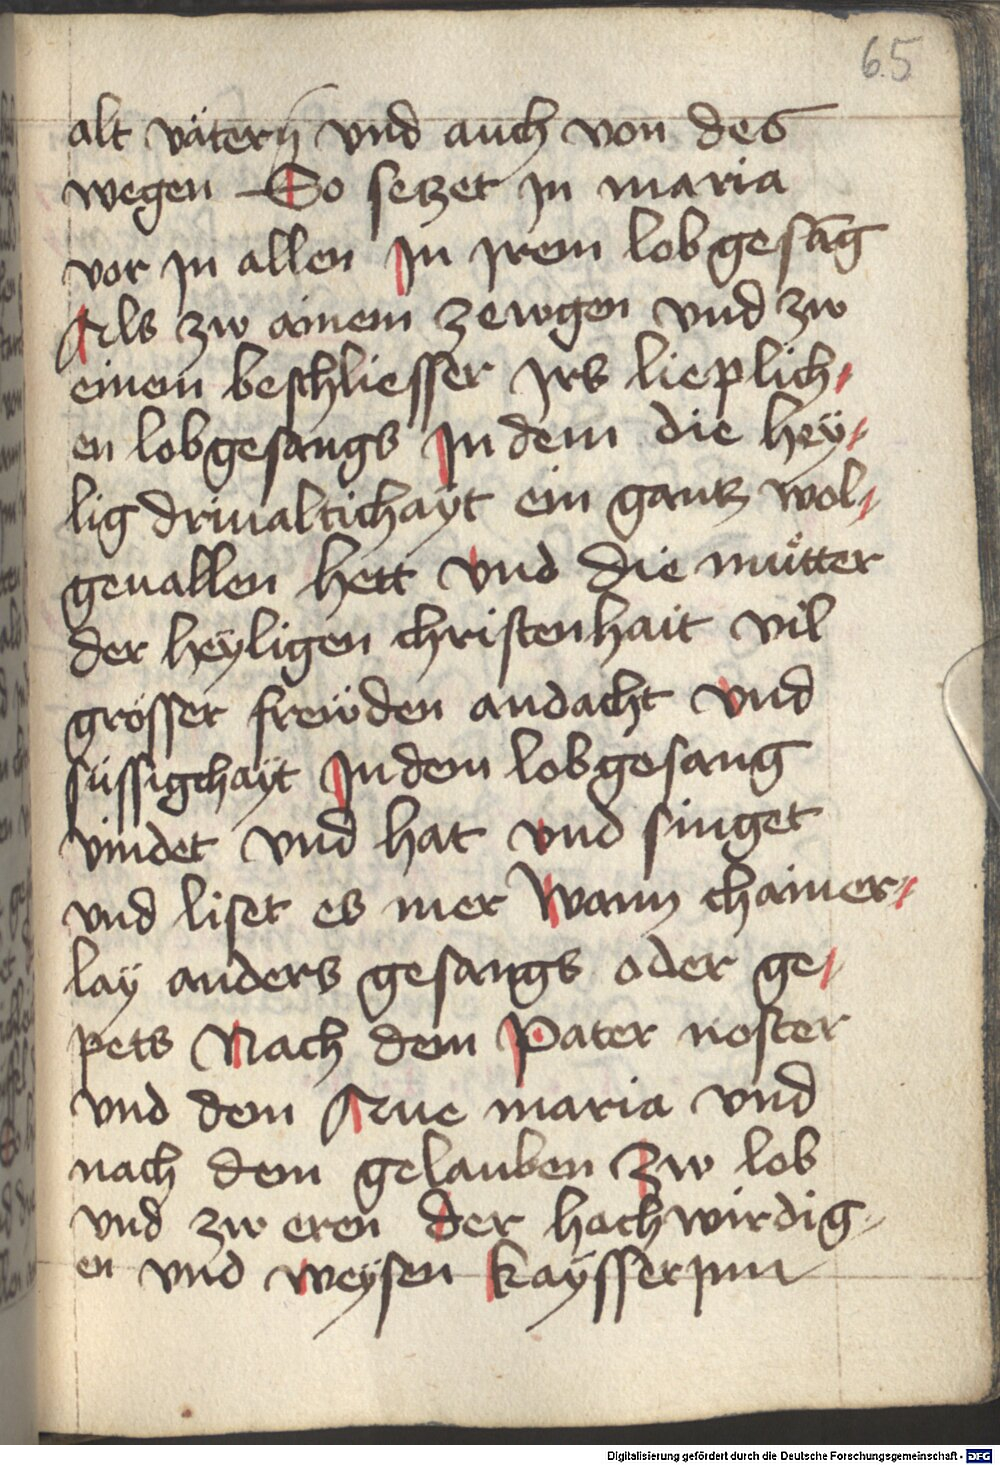 65
alt vätern vnd auch von des
wegen So setzet in maria
vor in allen In irem lobgesāg
Als zw ainem zewgen vnd zw
einem beschliesser irs lieplich-
en lobgesangs In dem die hey-
lig driualtichayt ein gantz wol-
geuallen hett vnd die můtter
der heyligen christenhait vil
grösser frewden andacht vnd
süssigchayt In dem lobgesang
vindet vnd hat vnd singet
vnd liset es mer Wann chainer-
lay anders gesangs oder ge-
pets Nach dem Pater noster
vnd dem Aue maria vnd
nach dem gelauben zw lob
vnd zw eren der hochwirdig-
en vnd weysen kaysserinn
Digitalisierung gefördert durch die Deutsche Forschungsgemeinschaft - DFG